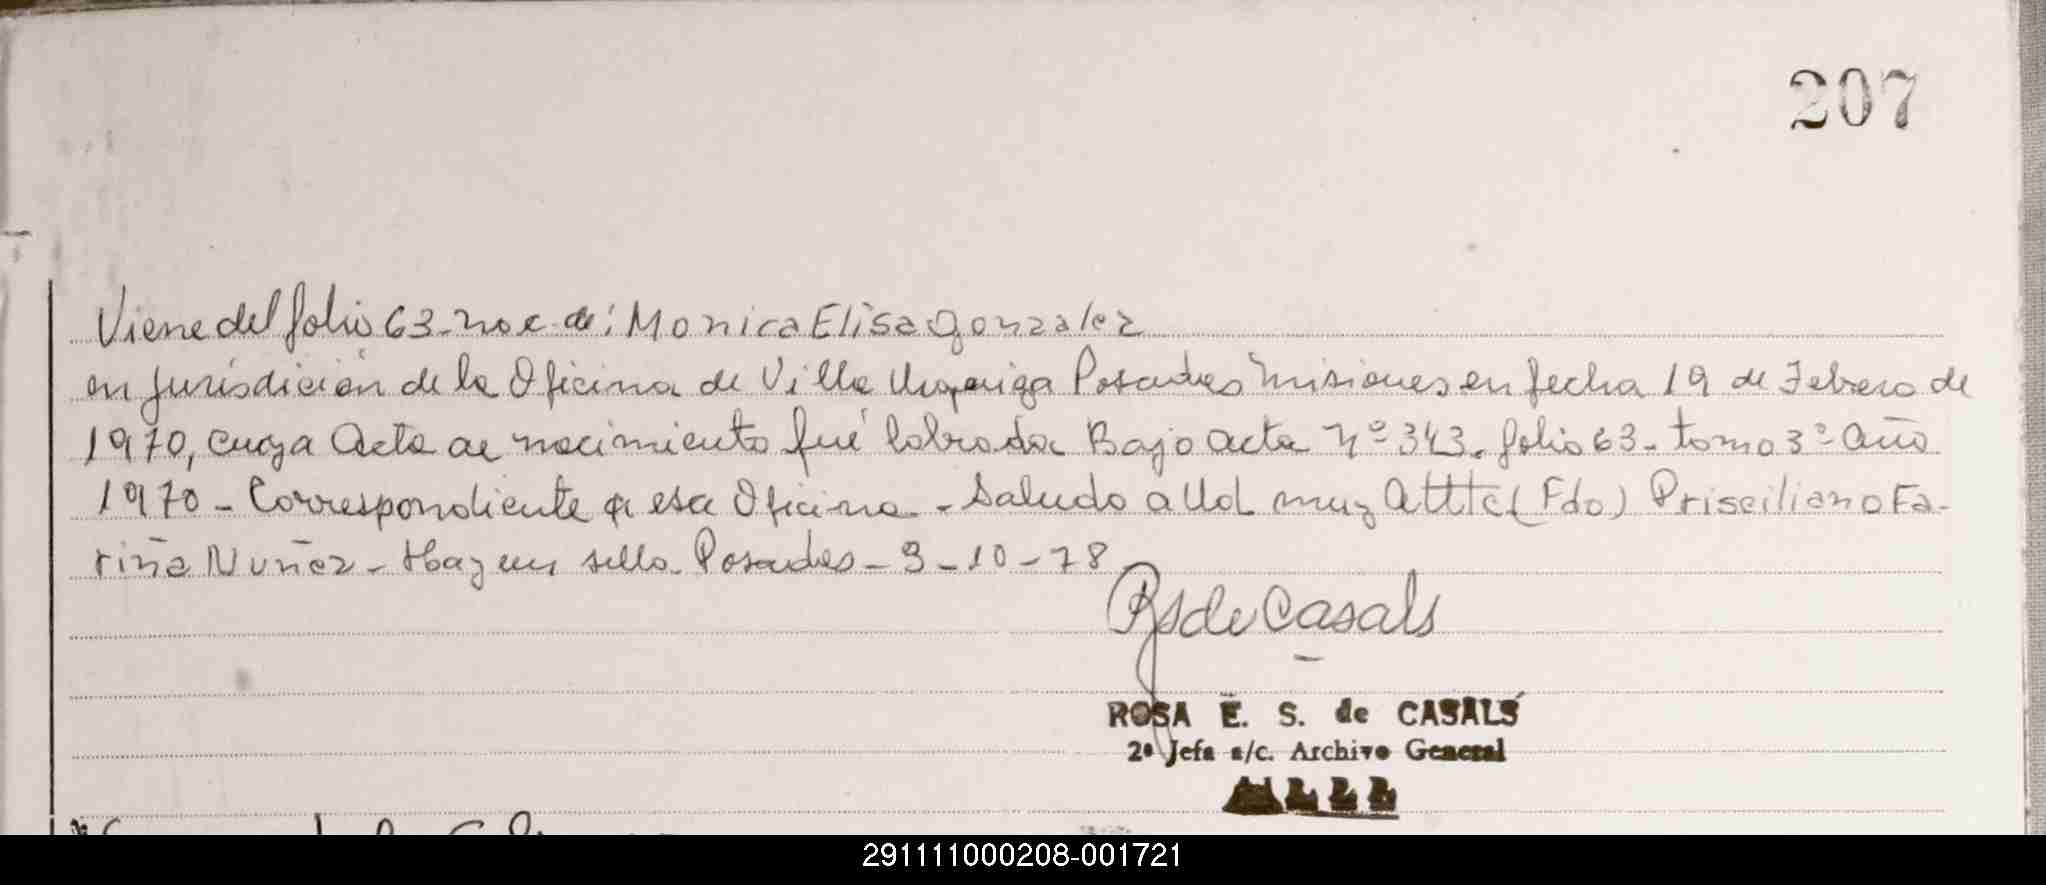 207
Viene del folio 63 - nac de: Monica Elisa Gonzalez
en jurisdición de la Oficina de Villa Urquiza Posadas Misiones en fecha 19 de Febrero de
1970, cuya Acta de nacimiento fué labrada Bajo acta Nº 343. folio 63 - tomo 3º año
1970 - Correspondiente a esa Oficina - Saludo a Ud muy Attte (Fdo) Prisciliano Fa-
riña Nuñez - Hay un sello - Posadas - 9 - 10 - 78
RSdeCasals
ROSA E. S. de CASALS
2ª Jefa a/c. Archivo General
291111000208-001721